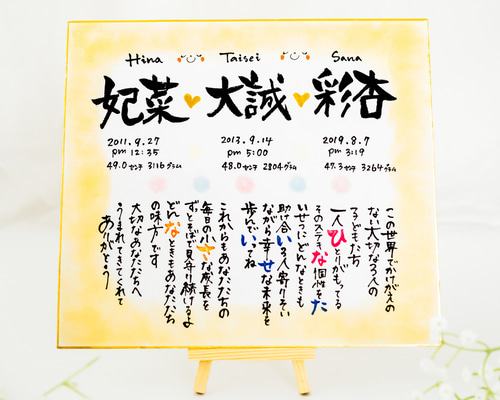 Hina Taisei Sana
妃菜 大誠 彩杏
2011.9.27 2013.9.14 2019.8.7
pm 12:35 pm 5:00 pm 3:19
49.0センチ 3116グラム 48.0センチ 2804グラム 47.3センチ 3264グラム
この世界でかけがえの
ない大切な3人の
子どもたち
一人ひとりがもってる
そのステキな個性をた
いせつにどんなときも
助け合い3人寄りそい
ながら幸せな未来を
歩んでいってね
これからもあなたたちの
毎日の小さな成長を
ずっとそばで見守り続けるよ
どんなときもあなたたち
の味方です
大切なあなたたちへ
うまれてきてくれて
ありがとう